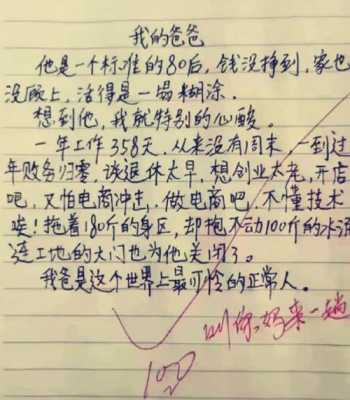 我的爸爸
他是一个标准的80后，钱没挣到，家也
没顾上，活得是一塌糊涂．
想到他，我就特别的心酸。
一年工作358天，从来没有周末，一到过
年财务归零，谈退休太早，想创业太老，开店
吧，又怕电商冲击，做电商吧，不懂技术
唉！拖着180斤的身区，却抱不动100斤的水泥
连工地的大门也为他关闭了。
我爸是这个世界上最可怜的正常人。
叫你妈来一趟
100